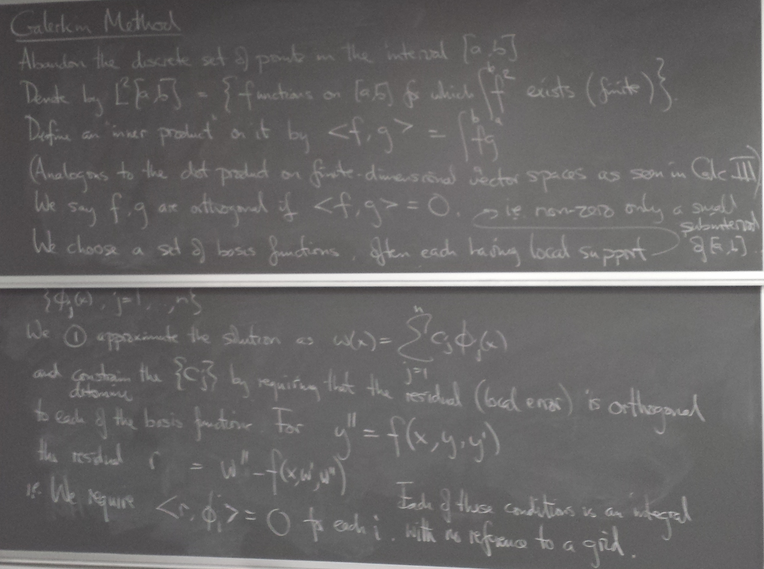 Galerkin Method
Abandon the discrete set of points in the interval [a,b]
Denote by L²[a,b] = {functions on [a,b] for which ∫ₐᵇ f² exists (finite)}.
Define an "inner product" on it by <f,g> = ∫ₐᵇ fg
(Analogous to the dot product on finite-dimensional vector spaces as seen in Calc III)
We say f,g are orthogonal if <f,g> = 0. → i.e. non-zero only a small subinterval of [a,b].
We choose a set of basis functions, often each having local support
{ϕⱼ(x), j=1, ,n}
We ① approximate the solution as w(x) = Σⱼ₌₁ⁿ cⱼ ϕⱼ(x)
and constrain the {cⱼ} by requiring that the residual (local error) is orthogonal
determine
to each of the basis functions. For y'' = f(x,y,y')
the residual r = w'' - f(x,w,w')
i.e. We require <r,ϕᵢ> = 0 for each i. Each of these conditions is an integral
with no reference to a grid.